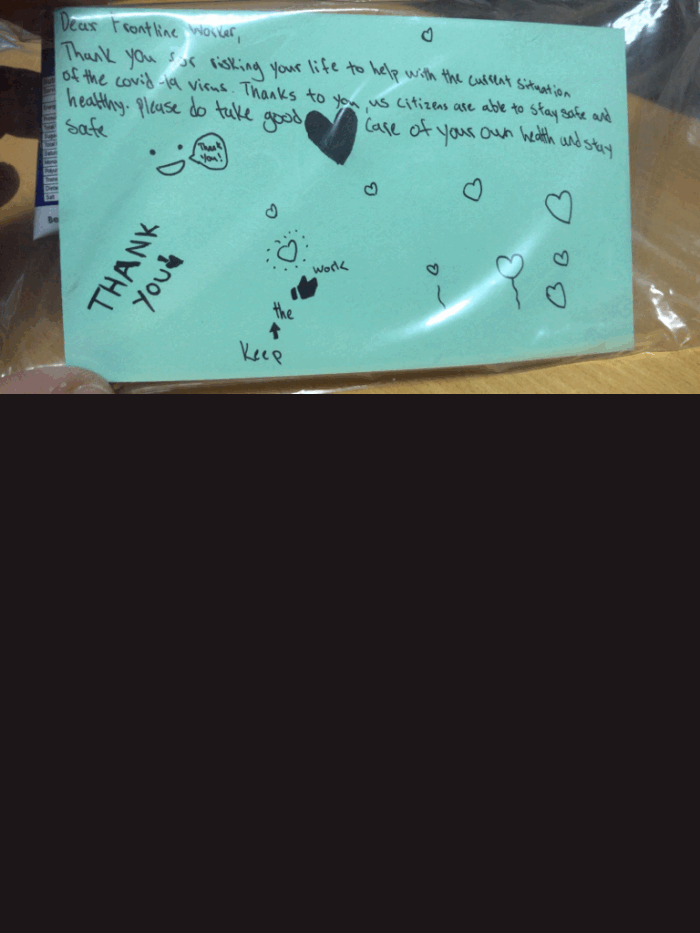 Dear Frontline Worker,
Thank you for risking your life to help with the current situation
of the covid-19 virus. Thanks to you, us citizens are able to stay safe and
healthy. Please do take good care of your own health and stay
safe
Thank
you!
THANK
YOU
work
the
Keep